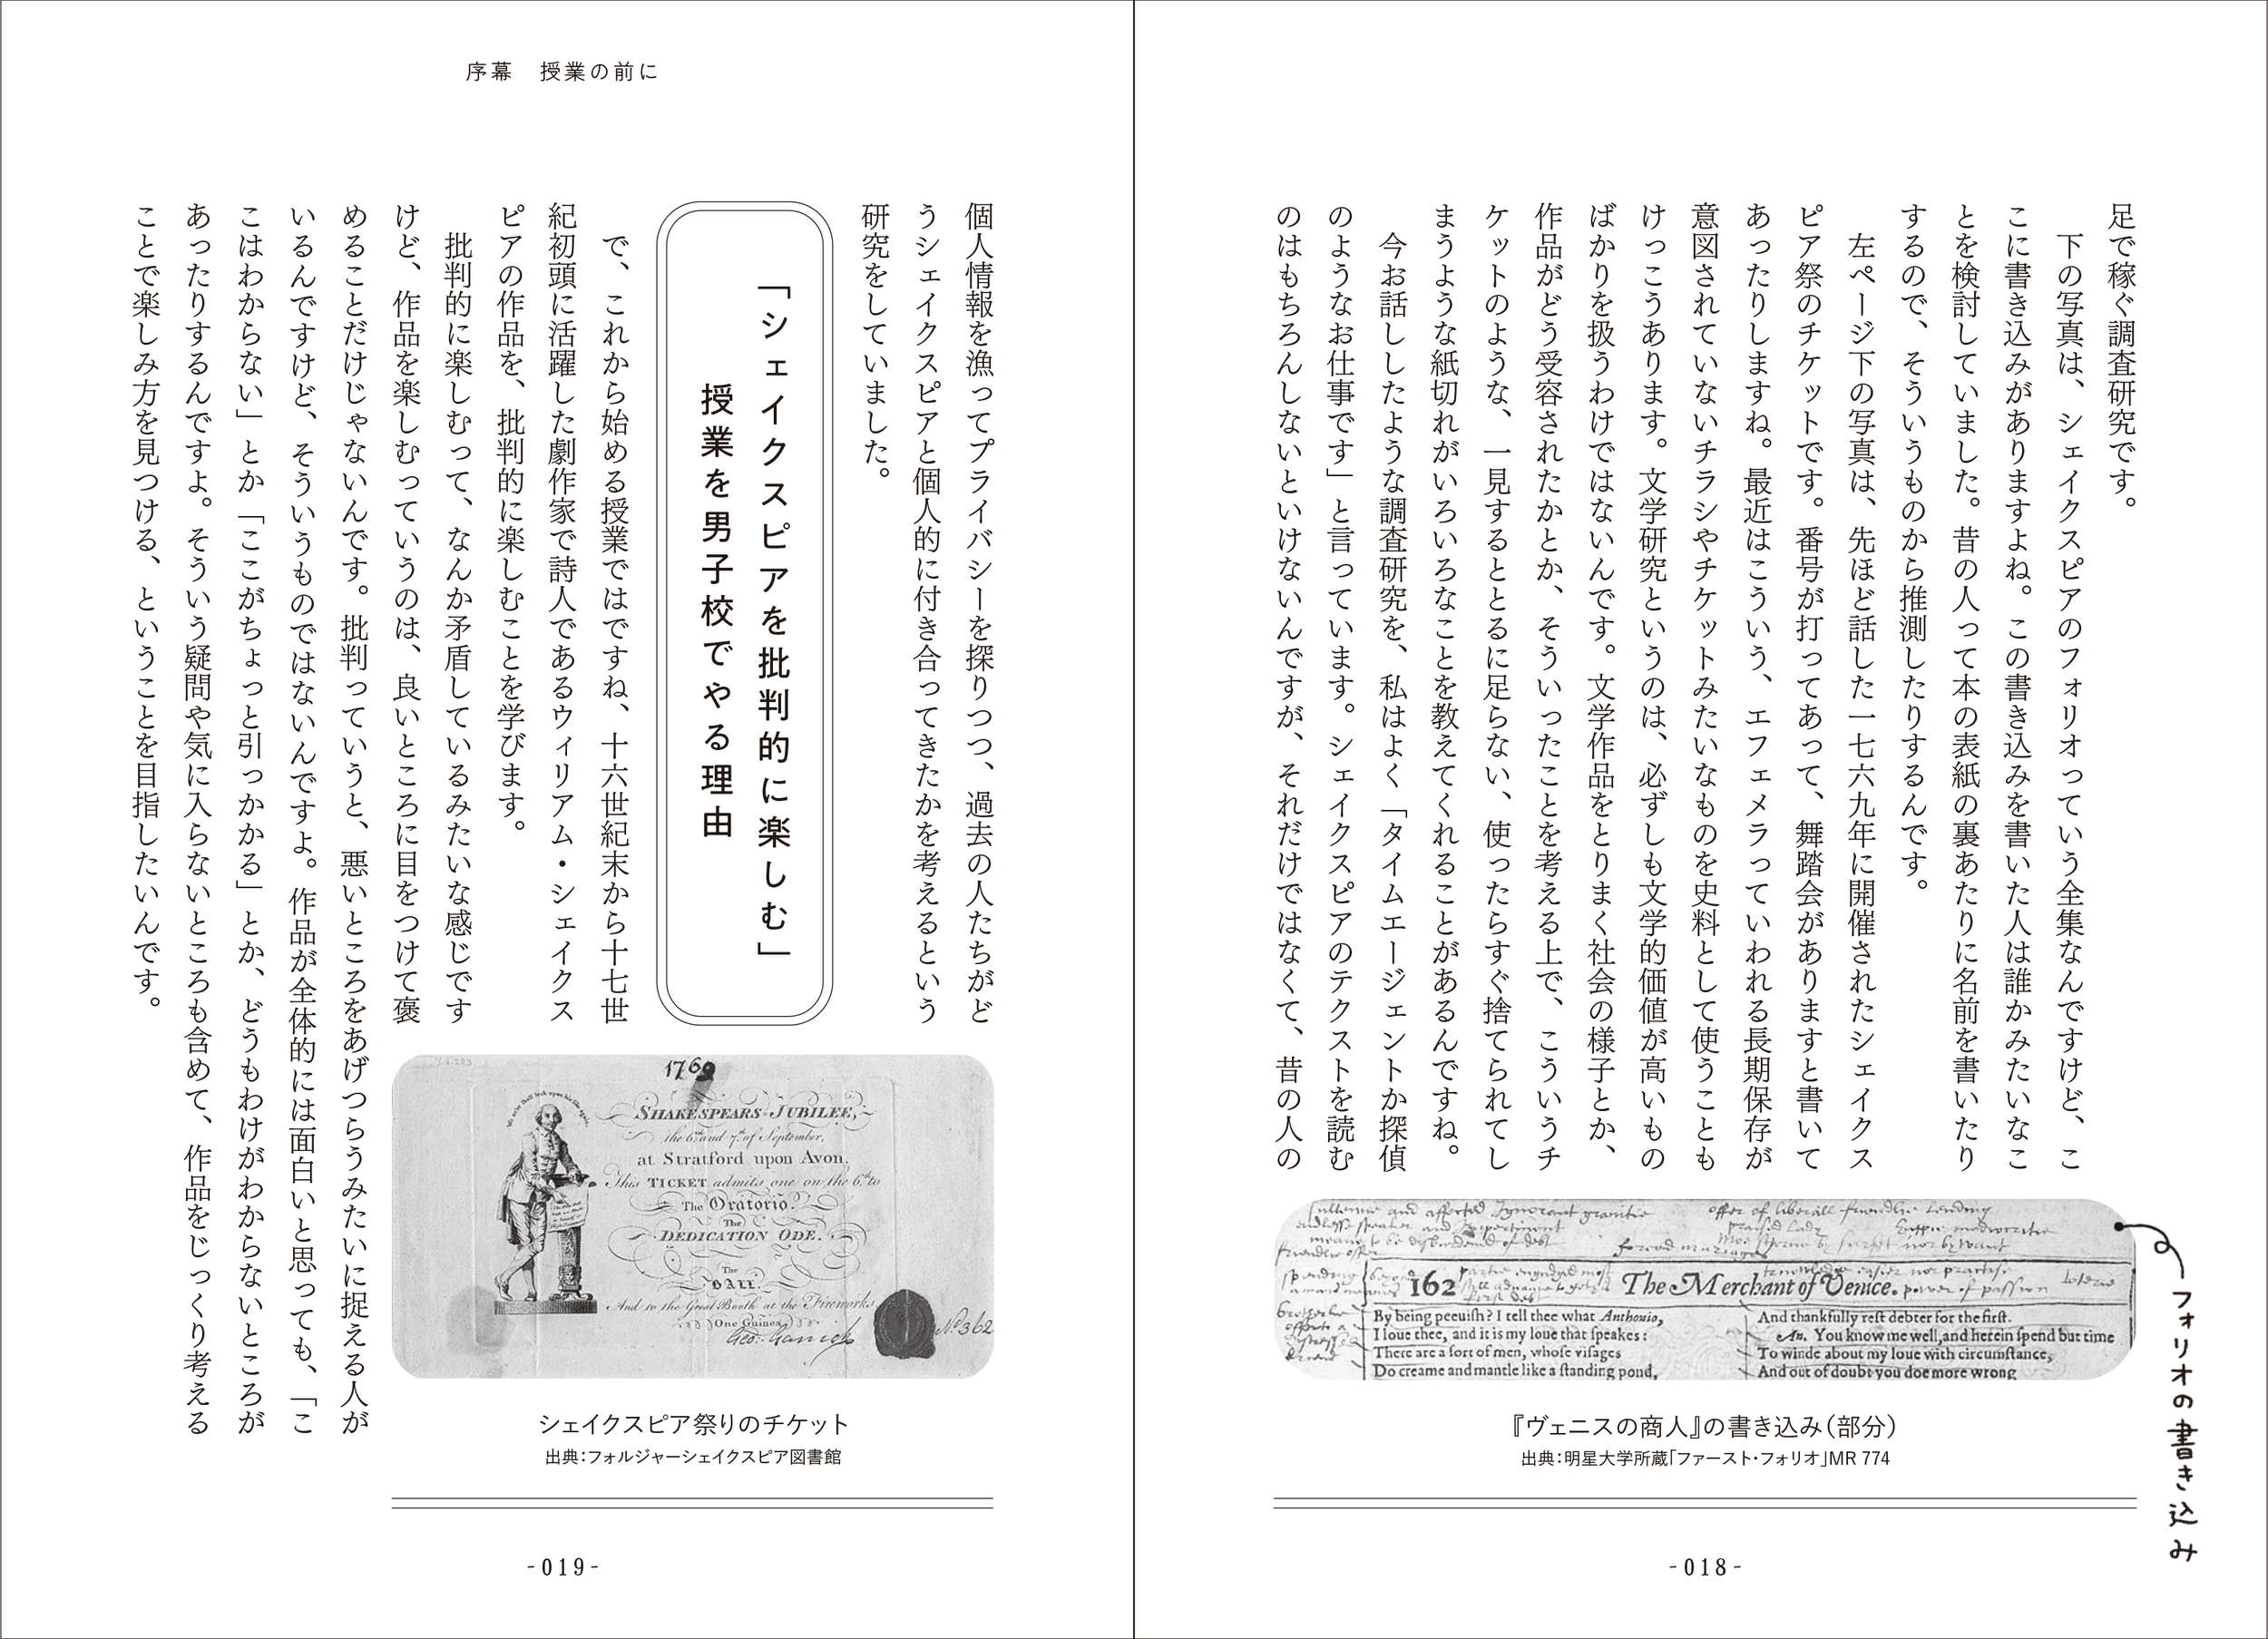 足で稼ぐ調査研究です。
　下の写真は、シェイクスピアのフォリオっていう全集なんですけど、こ
こに書き込みがありますよね。この書き込みを書いた人は誰かみたいなこ
とを検討していました。昔の人って本の表紙の裏あたりに名前を書いたり
するので、そういうものから推測したりするんです。
　左ページ下の写真は、先ほど話した一七六九年に開催されたシェイクス
ピア祭のチケットです。番号が打ってあって、舞踏会がありますと書いて
あったりしますね。最近はこういう、エフェメラっていわれる長期保存が
意図されていないチラシやチケットみたいなものを史料として使うことも
けっこうあります。文学研究というのは、必ずしも文学的価値が高いもの
ばかりを扱うわけではないんです。文学作品をとりまく社会の様子とか、
作品がどう受容されたかとか、そういったことを考える上で、こういうチ
ケットのような、一見するととるに足らない、使ったらすぐ捨てられてし
まうような紙切れがいろいろなことを教えてくれることがあるんですね。
　今お話ししたような調査研究を、私はよく「タイムエージェントか探偵
のようなお仕事です」と言っています。シェイクスピアのテクストを読む
のはもちろんしないといけないんですが、それだけではなくて、昔の人の
162
The Merchant of Venice.
By being peeuish? I tell thee what Anthonio,
I loue thee, and it is my loue that speakes:
There are a sort of men, whose visages
Do creame and mantle like a standing pond,
And thankfully rest debter for the first.
An. You know me well, and herein spend but time
To winde about my loue with circumstance,
And out of doubt you doe more wrong
フォリオの書き込み
『ヴェニスの商人』の書き込み（部分）
出典：明星大学所蔵「ファースト・フォリオ」MR 774
-018-
序幕　授業の前に
個人情報を漁ってプライバシーを探りつつ、過去の人たちがど
うシェイクスピアと個人的に付き合ってきたかを考えるという
研究をしていました。
「シェイクスピアを批判的に楽しむ」
授業を男子校でやる理由
　で、これから始める授業ではですね、十六世紀末から十七世
紀初頭に活躍した劇作家で詩人であるウィリアム・シェイクス
ピアの作品を、批判的に楽しむことを学びます。
　批判的に楽しむって、なんか矛盾しているみたいな感じです
けど、作品を楽しむっていうのは、良いところに目をつけて褒
めることだけじゃないんです。批判っていうと、悪いところをあげつらうみたいに捉える人が
いるんですけど、そういうものではないんですよ。作品が全体的には面白いと思っても、「こ
こはわからない」とか「ここがちょっと引っかかる」とか、どうもわけがわからないところが
あったりするんですよ。そういう疑問や気に入らないところも含めて、作品をじっくり考える
ことで楽しみ方を見つける、ということを目指したいんです。
1769
SHAKESPEARS JUBILEE,
the 6th and 7th of September,
at Stratford upon Avon.
This TICKET admits one on the 6th to
The Oratorio.
The
DEDICATION ODE.
The
BALL.
And to the Great Booth at the Fireworks
One Guinea
Geo: Garrick
No 362
シェイクスピア祭りのチケット
出典：フォルジャーシェイクスピア図書館
-019-